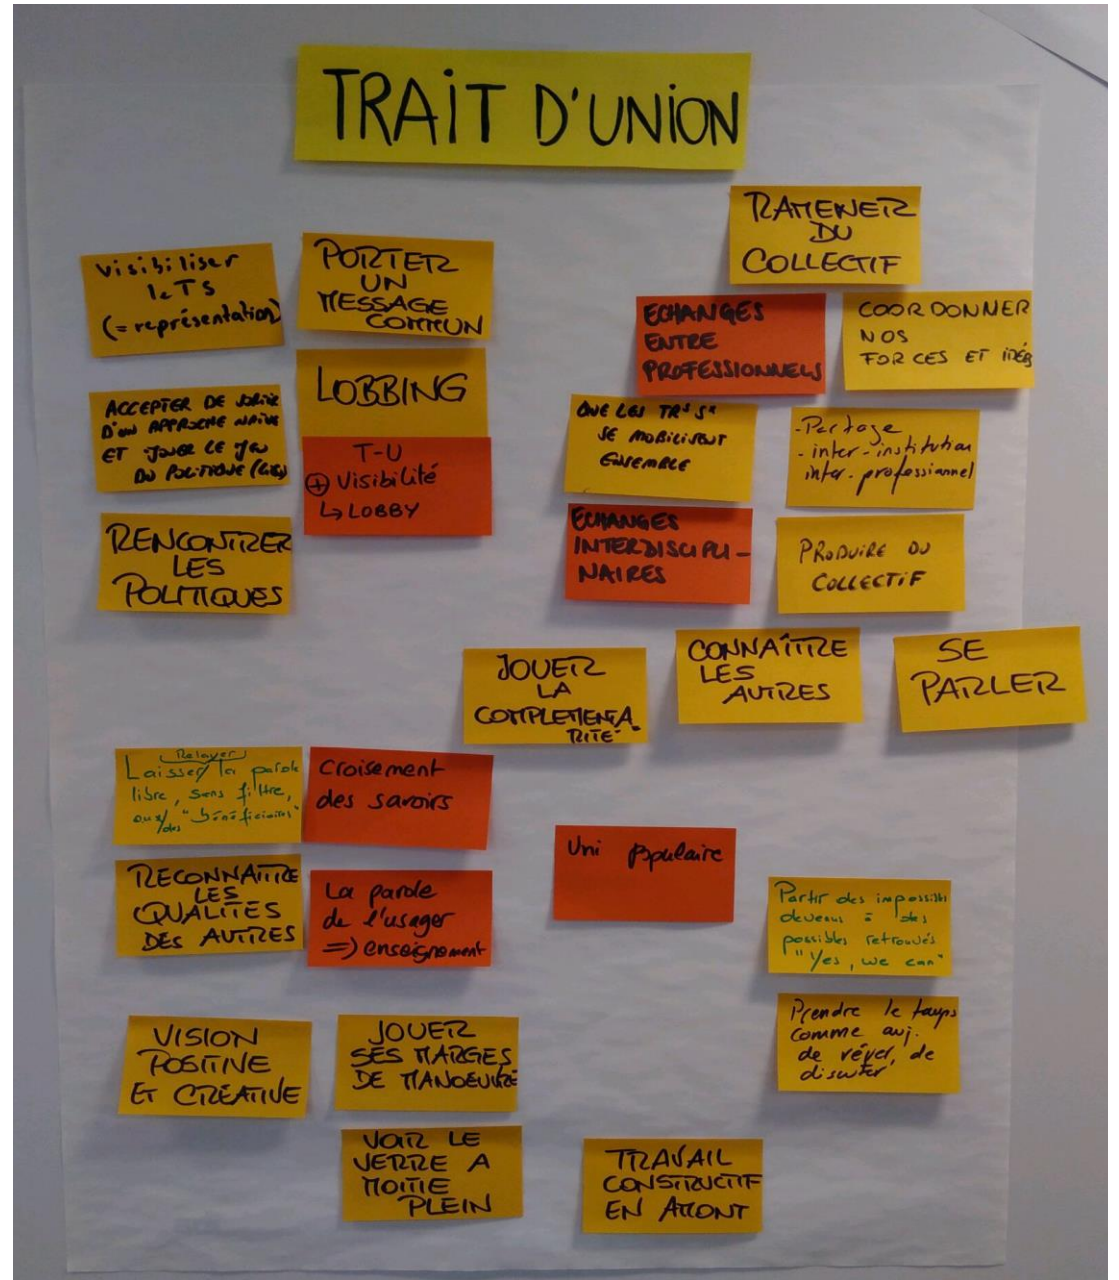 TRAIT D'UNION
RAMENER
DU
COLLECTIF
visibiliser
le TS
(= représentation)
PORTER
UN
MESSAGE
COMMUN
ECHANGES
ENTRE
PROFESSIONNELS
COORDONNER
NOS
FORCES ET IDÉES
LOBBING
ACCEPTER DE SORTIR
D'UN APPROCHE NAÏVE
ET JOUER LE JEU
DU POLITIQUE
QUE LES
SE MOBILISENT
ENSEMBLE
- Partage
- inter-institution
inter-professionnel
T-U
+ Visibilité
↳ LOBBY
RENCONTRER
LES
POLITIQUES
ECHANGES
INTERDISCIPLI-
NAIRES
PRODUIRE DU
COLLECTIF
JOUER
LA
COMPLEMENTA
RITÉ
CONNAÎTRE
LES
AUTRES
SE
PARLER
Relayer
Laisser/la parole
libre, sans filtre,
aux/des "bénéficiaires"
Croisement
des savoirs
Uni populaire
RECONNAITRE
LES
QUALITÉS
DES AUTRES
La parole
de l'usager
=> enseignement
Partir des impossibles
devenus = des
possibles retrouvés
"Yes, we can"
VISION
POSITIVE
ET CRÉATIVE
JOUER
SES MARGES
DE MANOEUVRE
Prendre le temps
comme auj.
de rêver, de
discuter
VOIR LE
VERRE A
MOITIE
PLEIN
TRAVAIL
CONSTRUCTIF
EN AMONT